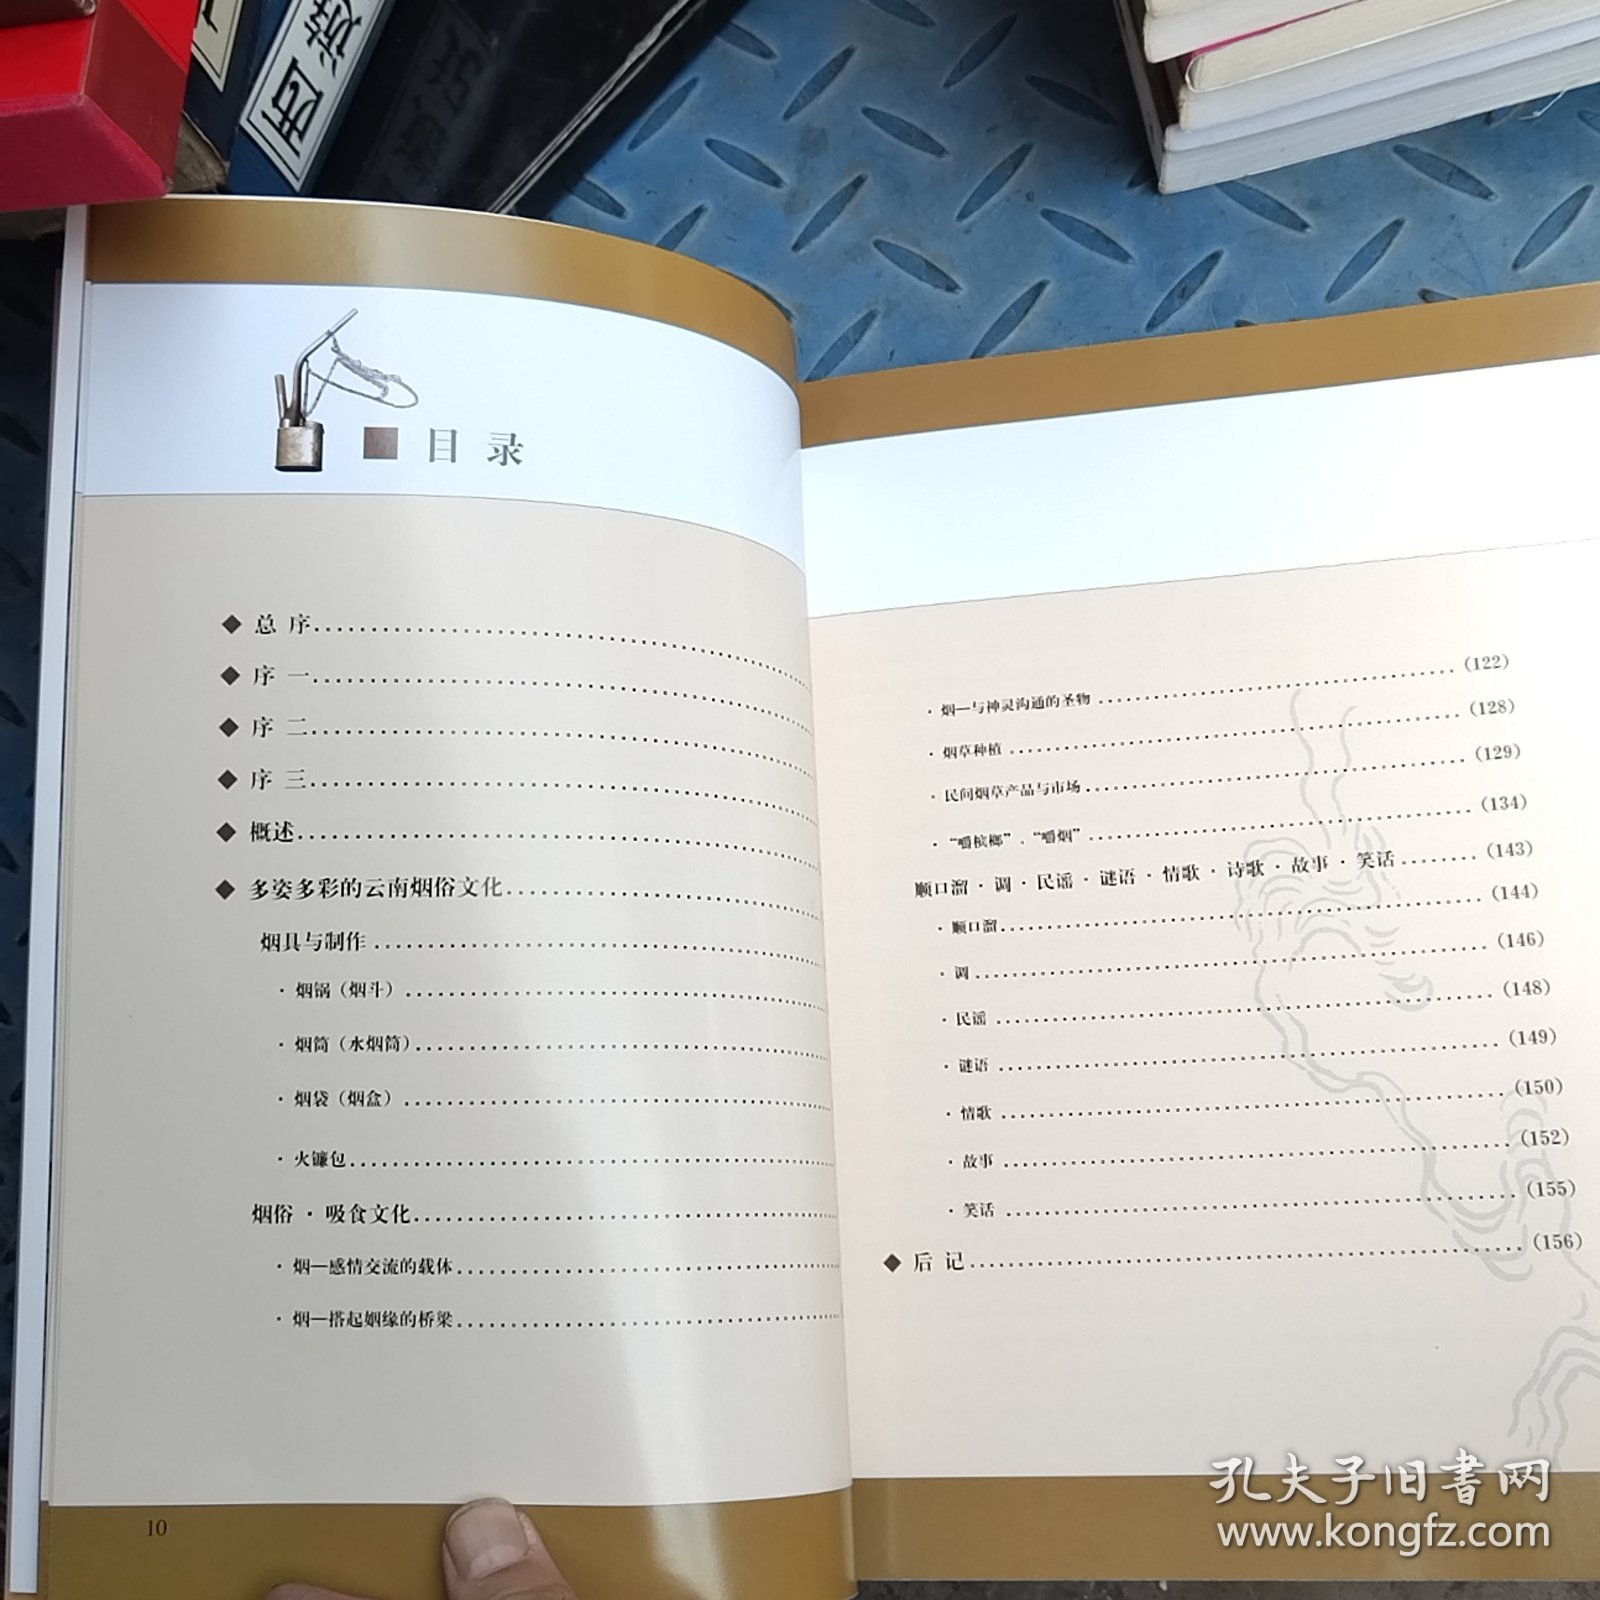 西游
目录
◆ 总 序
◆ 序 一
◆ 序 二
◆ 序 三
◆ 概述
◆ 多姿多彩的云南烟俗文化
烟具与制作
· 烟锅（烟斗）
· 烟筒（水烟筒）
· 烟袋（烟盒）
· 火镰包
烟俗 · 吸食文化
· 烟—感情交流的载体
· 烟—搭起姻缘的桥梁
10
· 烟—与神灵沟通的圣物 (122)
· 烟草种植 (128)
· 民间烟草产品与市场 (129)
· “嚼槟榔”、“嚼烟” (134)
顺口溜 · 调 · 民谣 · 谜语 · 情歌 · 诗歌 · 故事 · 笑话 (143)
· 顺口溜 (144)
· 调 (146)
· 民谣 (148)
· 谜语 (149)
· 情歌 (150)
· 故事 (152)
· 笑话 (155)
◆ 后 记 (156)
孔夫子旧书网
www.kongfz.com